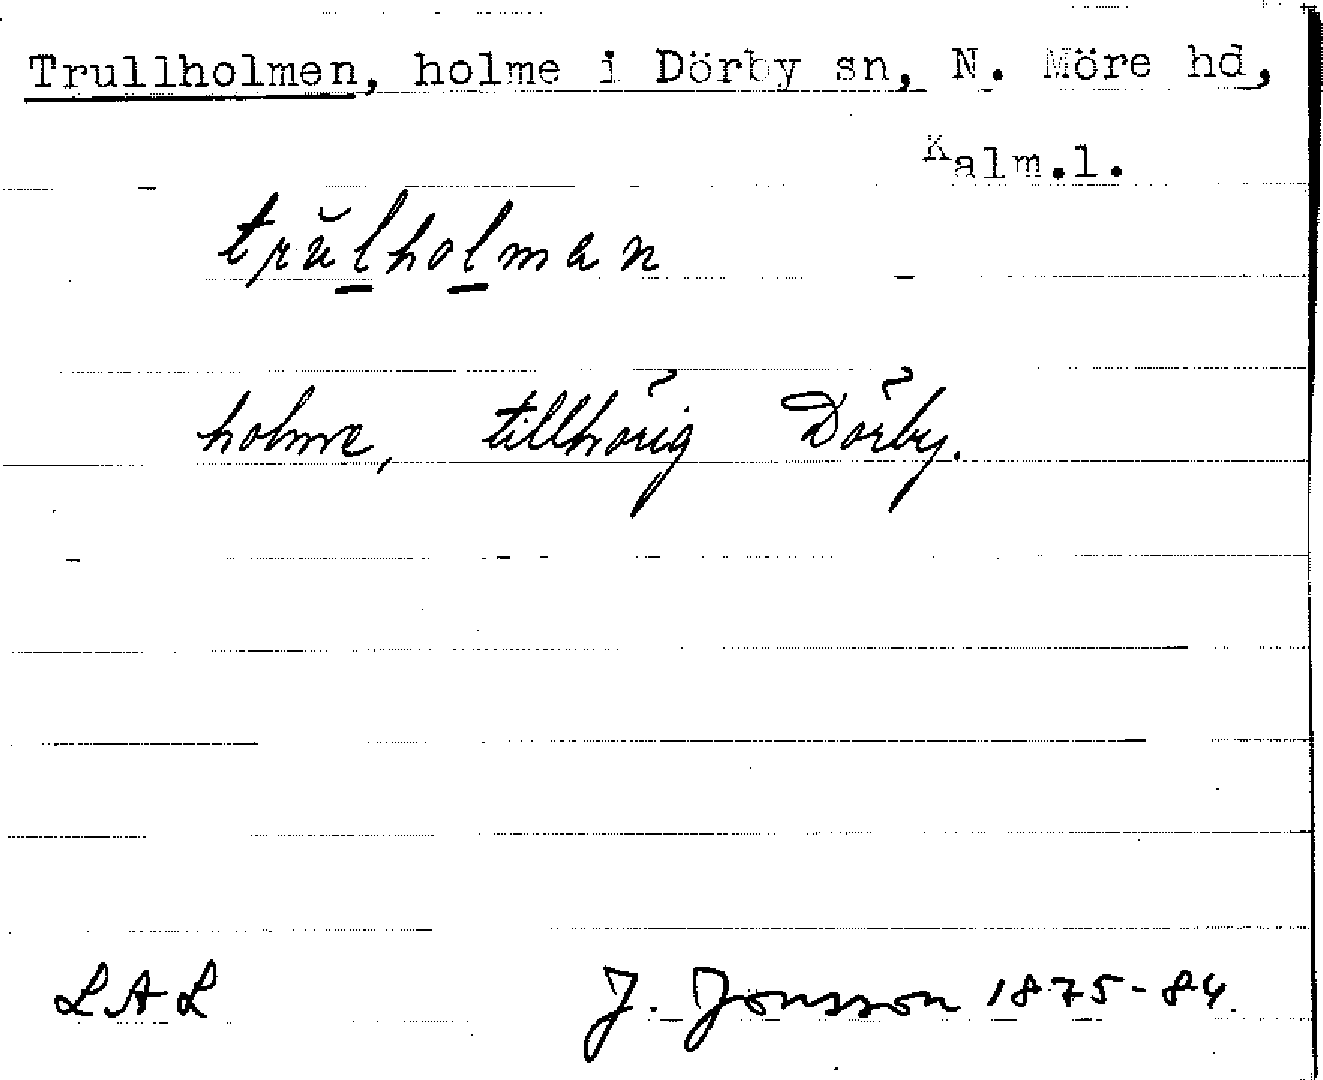 Trullholmen, holme i Dörby sn, N. Möre hd,
Kalm.l.
trŭlholman
holme, tillhörig Dörby.
LAL J. Jonsson 1875-84.